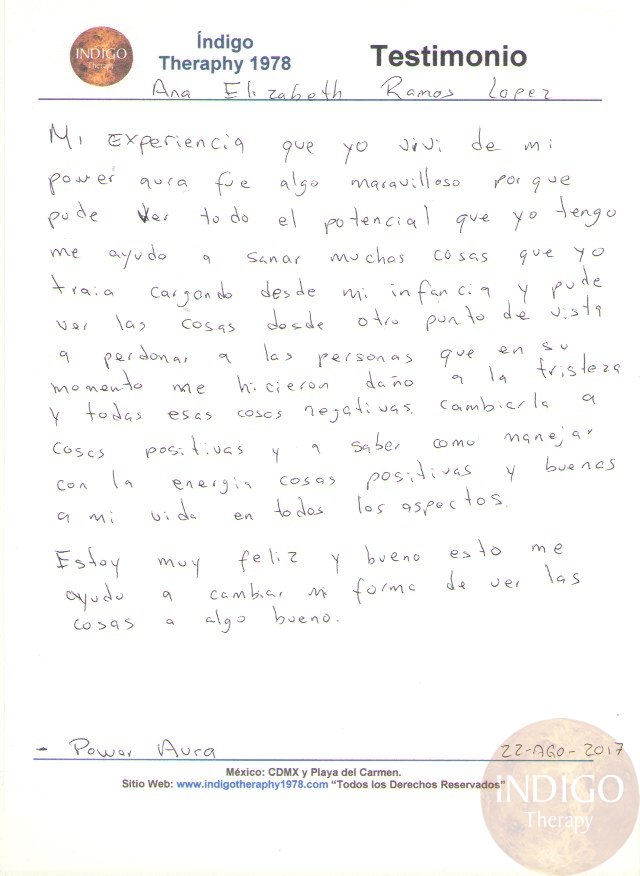 INDIGO
Therapy
Índigo
Theraphy 1978
Testimonio
Ana Elizabeth Ramos Lopez
Mi experiencia que yo vivi de mi
power aura fue algo maravilloso porque
pude ver todo el potencial que yo tengo
me ayudo a sanar muchas cosas que yo
traia cargando desde mi infancia y pude
ver las cosas desde otro punto de vista
a perdonar a las personas que en su
momento me hicieron daño a la tristeza
y todas esas cosas negativas cambiarla a
cosas positivas y a saber como manejar
con la energia cosas positivas y buenas
a mi vida en todos los aspectos.
Estoy muy feliz y bueno esto me
ayudo a cambiar mi forma de ver las
cosas a algo bueno.
- Power Aura 22-AGO-2017
México: CDMX y Playa del Carmen.
Sitio Web: www.indigotheraphy1978.com “Todos los Derechos Reservados”
INDIGO
Therapy